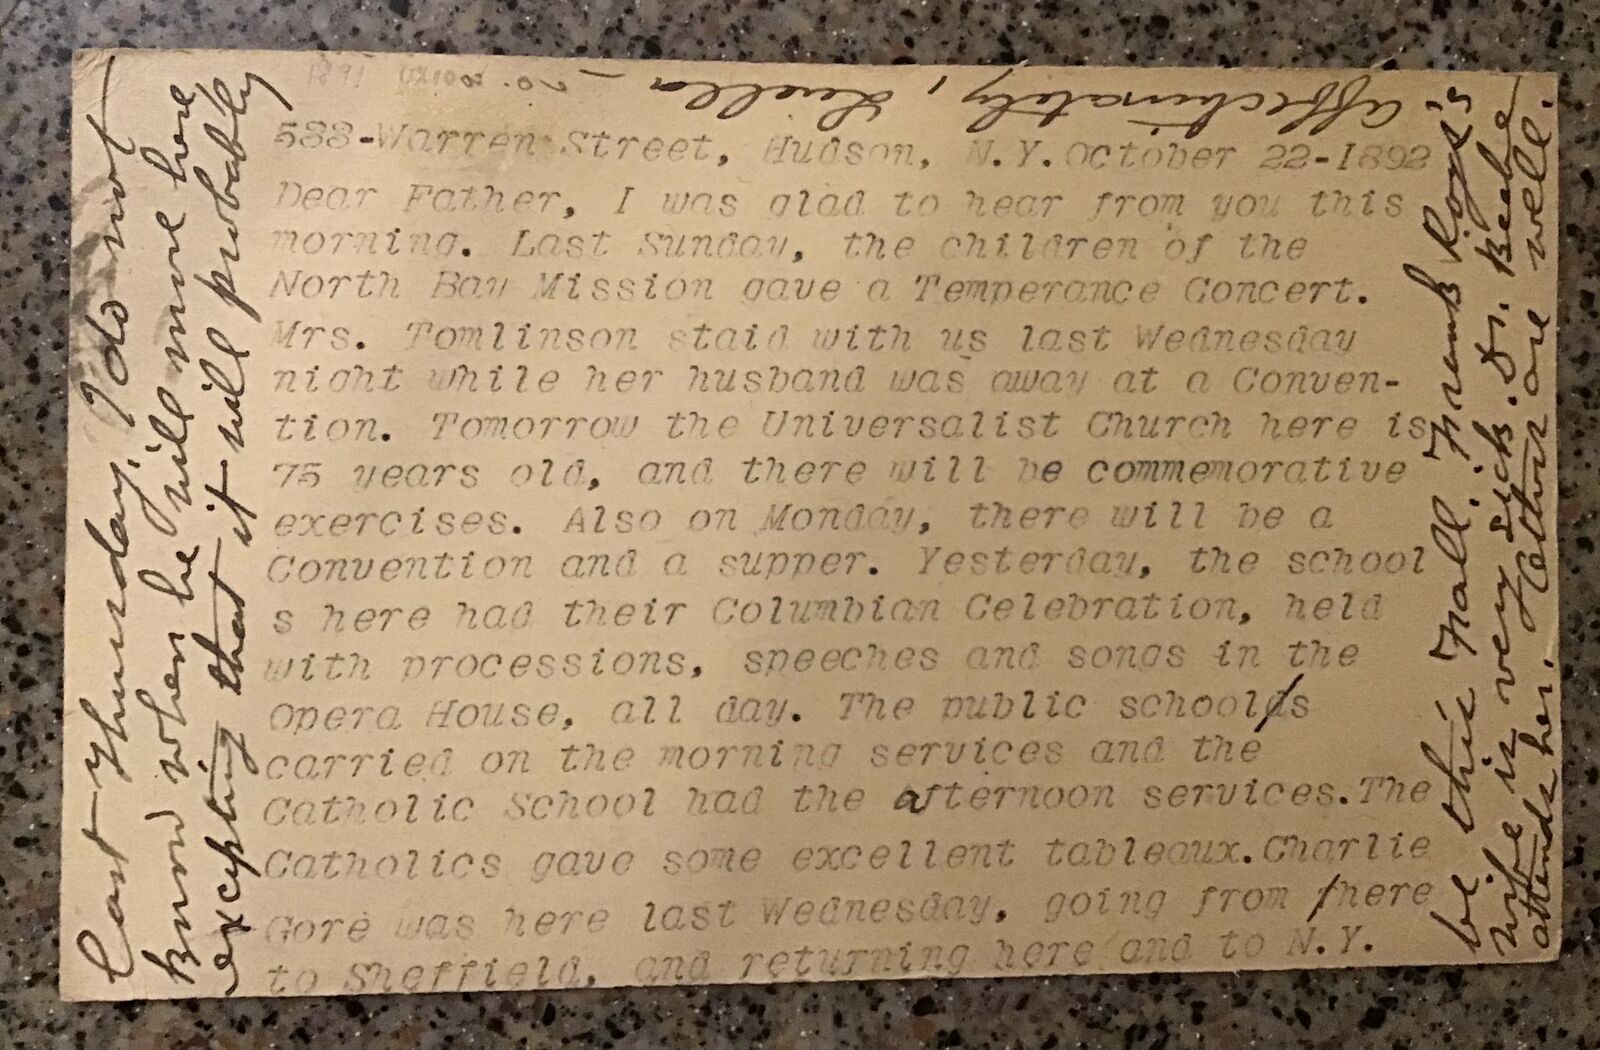 533-Warren Street, Hudson, N.Y. October 22-1892
Dear Father, I was glad to hear from you this
morning. Last Sunday, the children of the
North Bay Mission gave a Temperance Concert.
Mrs. Tomlinson staid with us last Wednesday
night while her husband was away at a Conven-
tion. Tomorrow the Universalist Church here is
75 years old, and there will be commemorative
exercises. Also on Monday, there will be a
Convention and a supper. Yesterday, the school
s here had their Columbian Celebration, held
with processions, speeches and songs in the
Opera House, all day. The public schools
carried on the morning services and the
Catholic School had the afternoon services. The
Catholics gave some excellent tableaux. Charlie
Gore was here last Wednesday, going from here
to Sheffield, and returning here and to N.Y.
last Thursday. I do not
know when he will move here,
excepting that it will probably
be this Fall. Frank Rogs's
wife is very sick. Dr. Beebe
attends her. Arthur are well.
affectionately, Luella